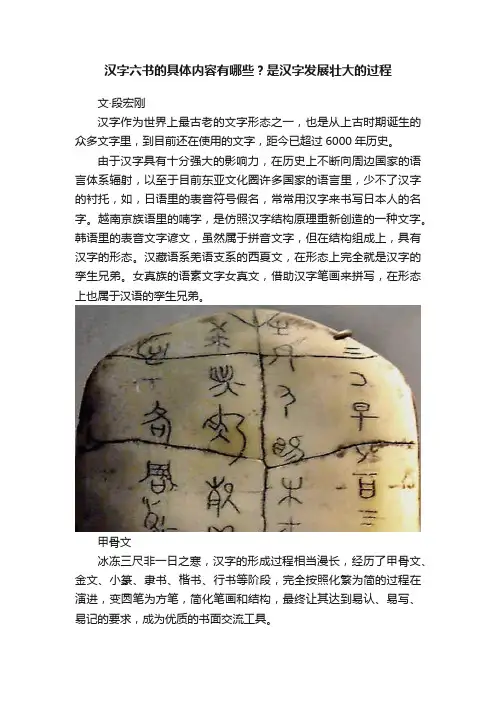 汉字六书的具体内容有哪些？是汉字发展壮大的过程
文·段宏刚
汉字作为世界上最古老的文字形态之一，也是从上古时期诞生的
众多文字里，到目前还在使用的文字，距今已超过6000年历史。
由于汉字具有十分强大的影响力，在历史上不断向周边国家的语
言体系辐射，以至于目前东亚文化圈许多国家的语言里，少不了汉字
的衬托，如，日语里的表音符号假名，常常用汉字来书写日本人的名
字。越南京族语里的喃字，是仿照汉字结构原理重新创造的一种文字。
韩语里的表音文字谚文，虽然属于拼音文字，但在结构组成上，具有
汉字的形态。汉藏语系羌语支系的西夏文，在形态上完全就是汉字的
孪生兄弟。女真族的语素文字女真文，借助汉字笔画来拼写，在形态
上也属于汉语的孪生兄弟。
甲骨文
冰冻三尺非一日之寒，汉字的形成过程相当漫长，经历了甲骨文、
金文、小篆、隶书、楷书、行书等阶段，完全按照化繁为简的过程在
演进，变圆笔为方笔，简化笔画和结构，最终让其达到易认、易写、
易记的要求，成为优质的书面交流工具。